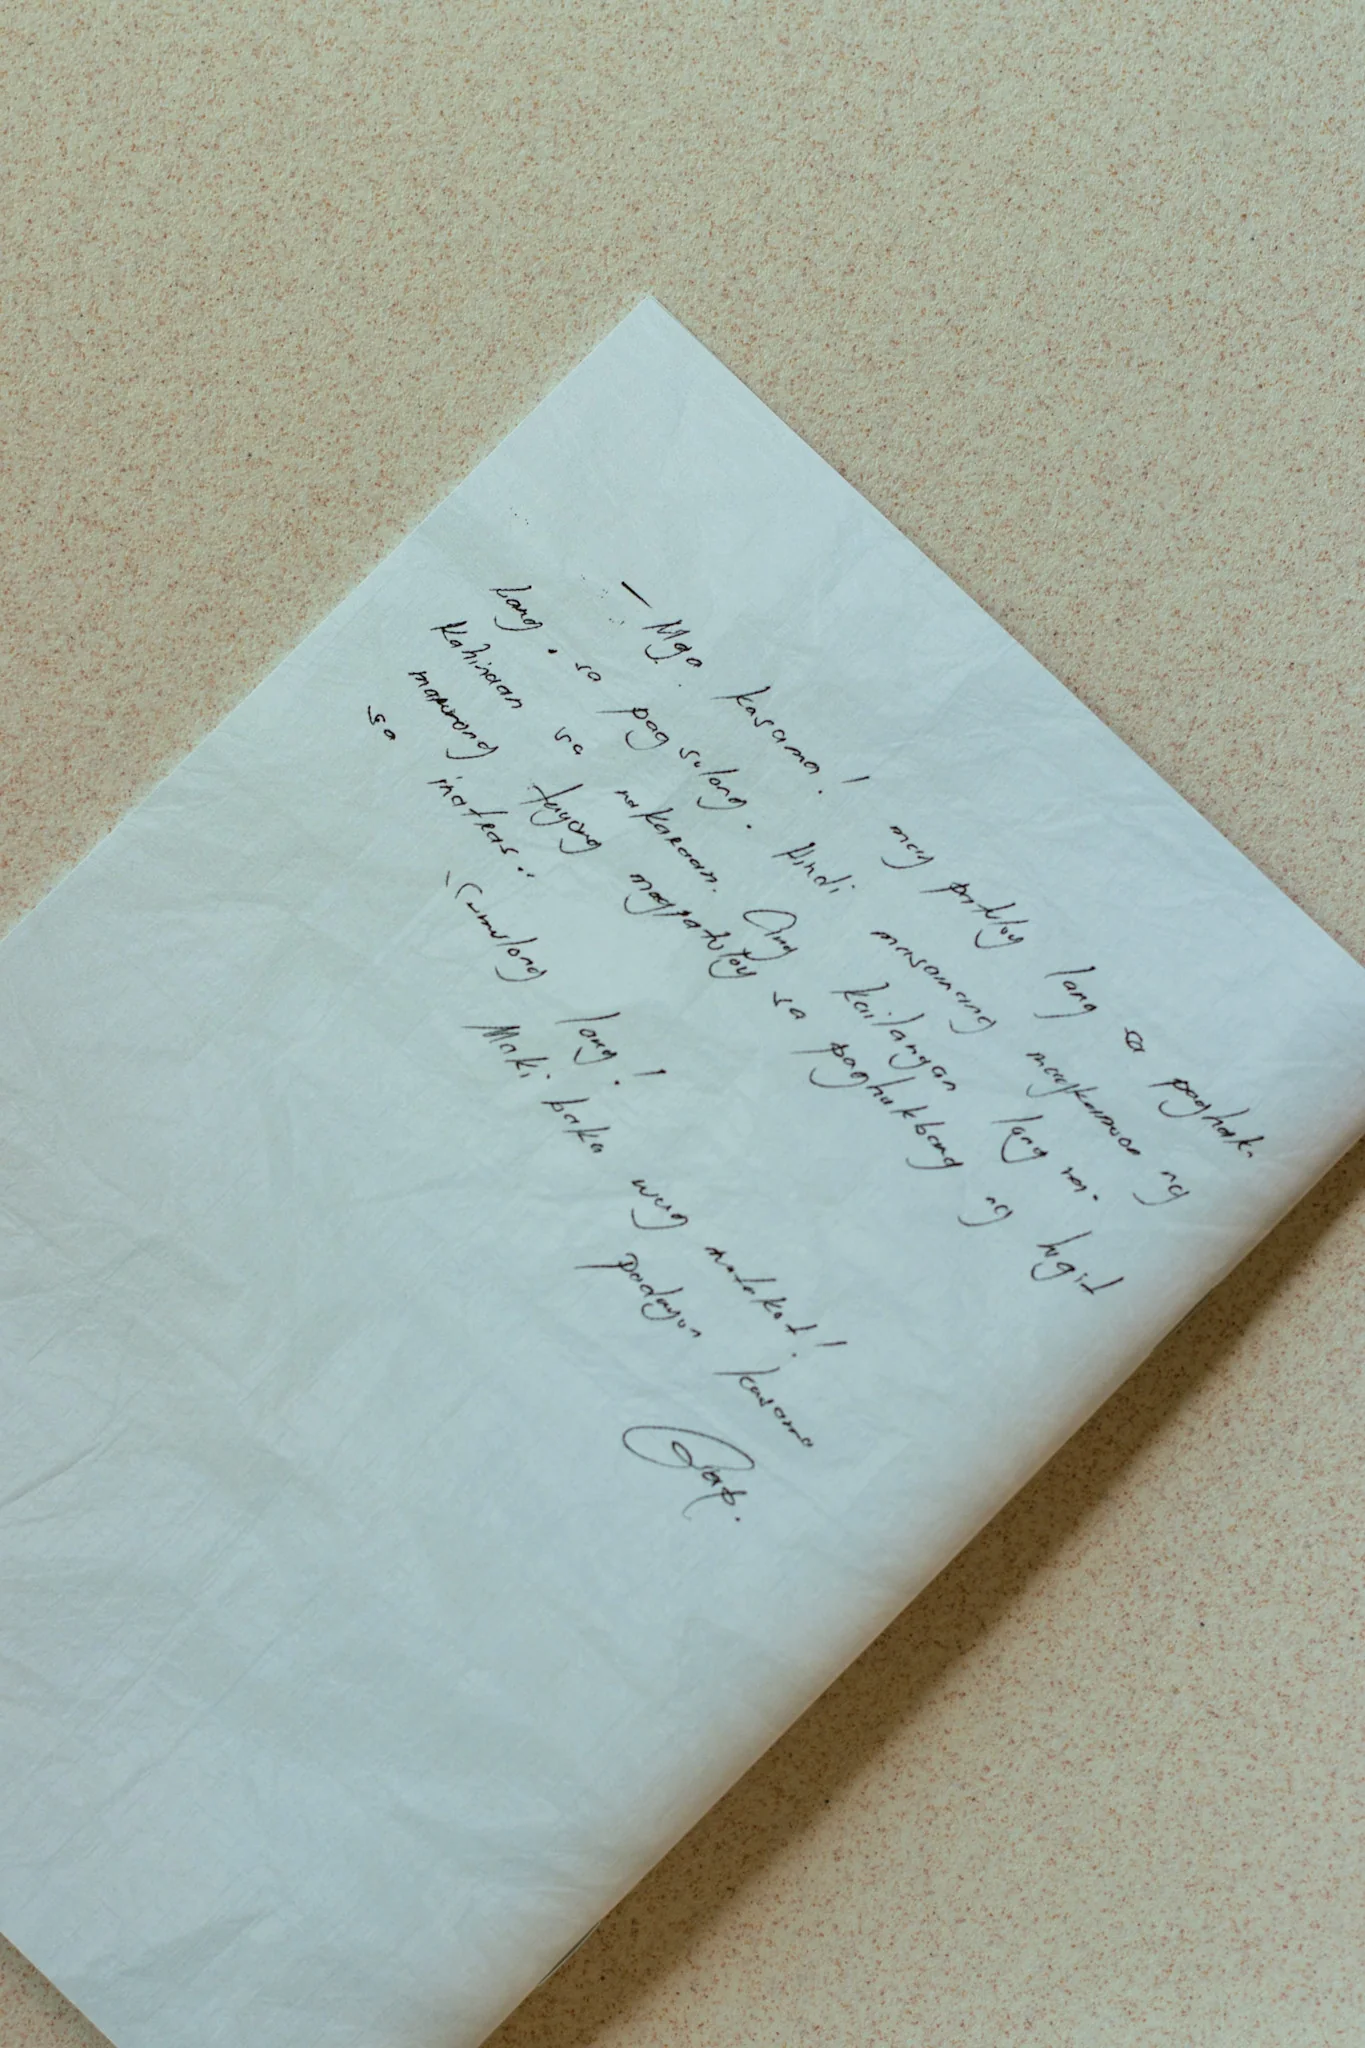 — Mga kasama! may patuloy lang sa paghak-
bang. sa pag sulong. Hindi masamang magkaroon ng
kahinaan sa nakaraan. Ang kailangan lang ay
marunong tayong magpatuloy sa paghakbang ng higit
sa inatras..
Sumulong lang!
Maki baka wag matakot!
padayon kasama